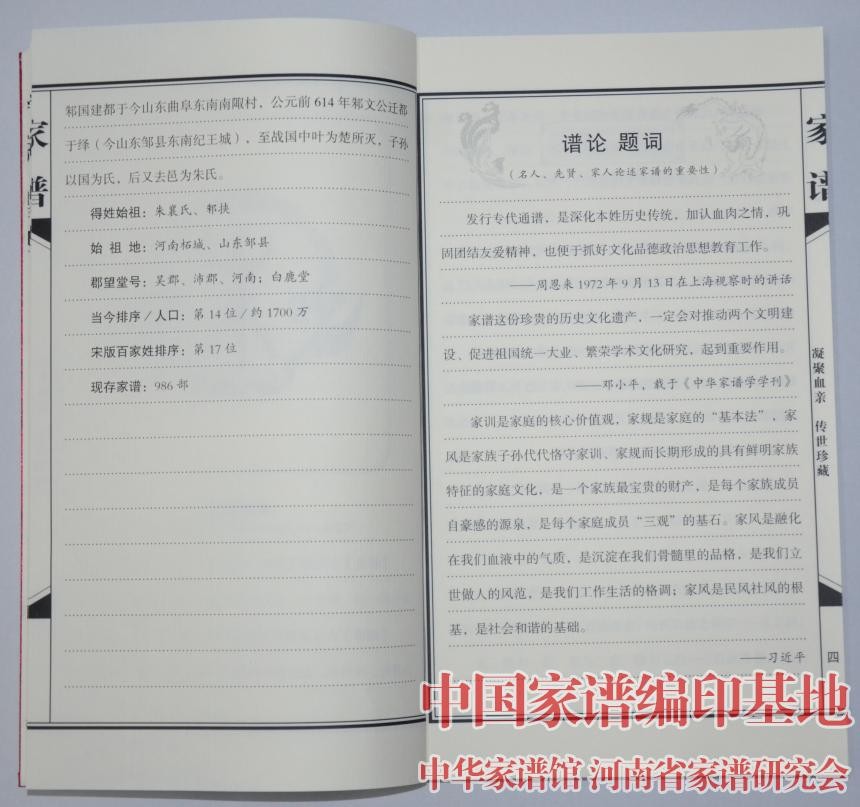 家谱
邾国建都于今山东曲阜东南南陬村，公元前 614 年邾文公迁都
于绎（今山东邹县东南纪王城），至战国中叶为楚所灭，子孙
以国为氏，后又去邑为朱氏。
得姓始祖：朱襄氏、邾挟
始 祖 地：河南柘城、山东邹县
郡望堂号：吴郡、沛郡、河南；白鹿堂
当今排序 / 人口：第 14 位 / 约 1700 万
宋版百家姓排序：第 17 位
现存家谱：986 部
谱论 题词
（名人、先贤、家人论述家谱的重要性）
发行专代通谱，是深化本姓历史传统，加认血肉之情，巩
固团结友爱精神，也便于抓好文化品德政治思想教育工作。
——周恩来 1972 年 9 月 13 日在上海视察时的讲话
家谱这份珍贵的历史文化遗产，一定会对推动两个文明建
设、促进祖国统一大业、繁荣学术文化研究，起到重要作用。
——邓小平，载于《中华家谱学学刊》
家训是家庭的核心价值观，家规是家庭的“基本法”，家
风是家族子孙代代恪守家训、家规而长期形成的具有鲜明家族
特征的家庭文化，是一个家族最宝贵的财产，是每个家族成员
自豪感的源泉，是每个家庭成员“三观”的基石。家风是融化
在我们血液中的气质，是沉淀在我们骨髓里的品格，是我们立
世做人的风范，是我们工作生活的格调；家风是民风社风的根
基，是社会和谐的基础。
——习近平
家谱
凝聚血亲 传世珍藏
四
中国家谱编印基地
中华家谱馆 河南省家谱研究会